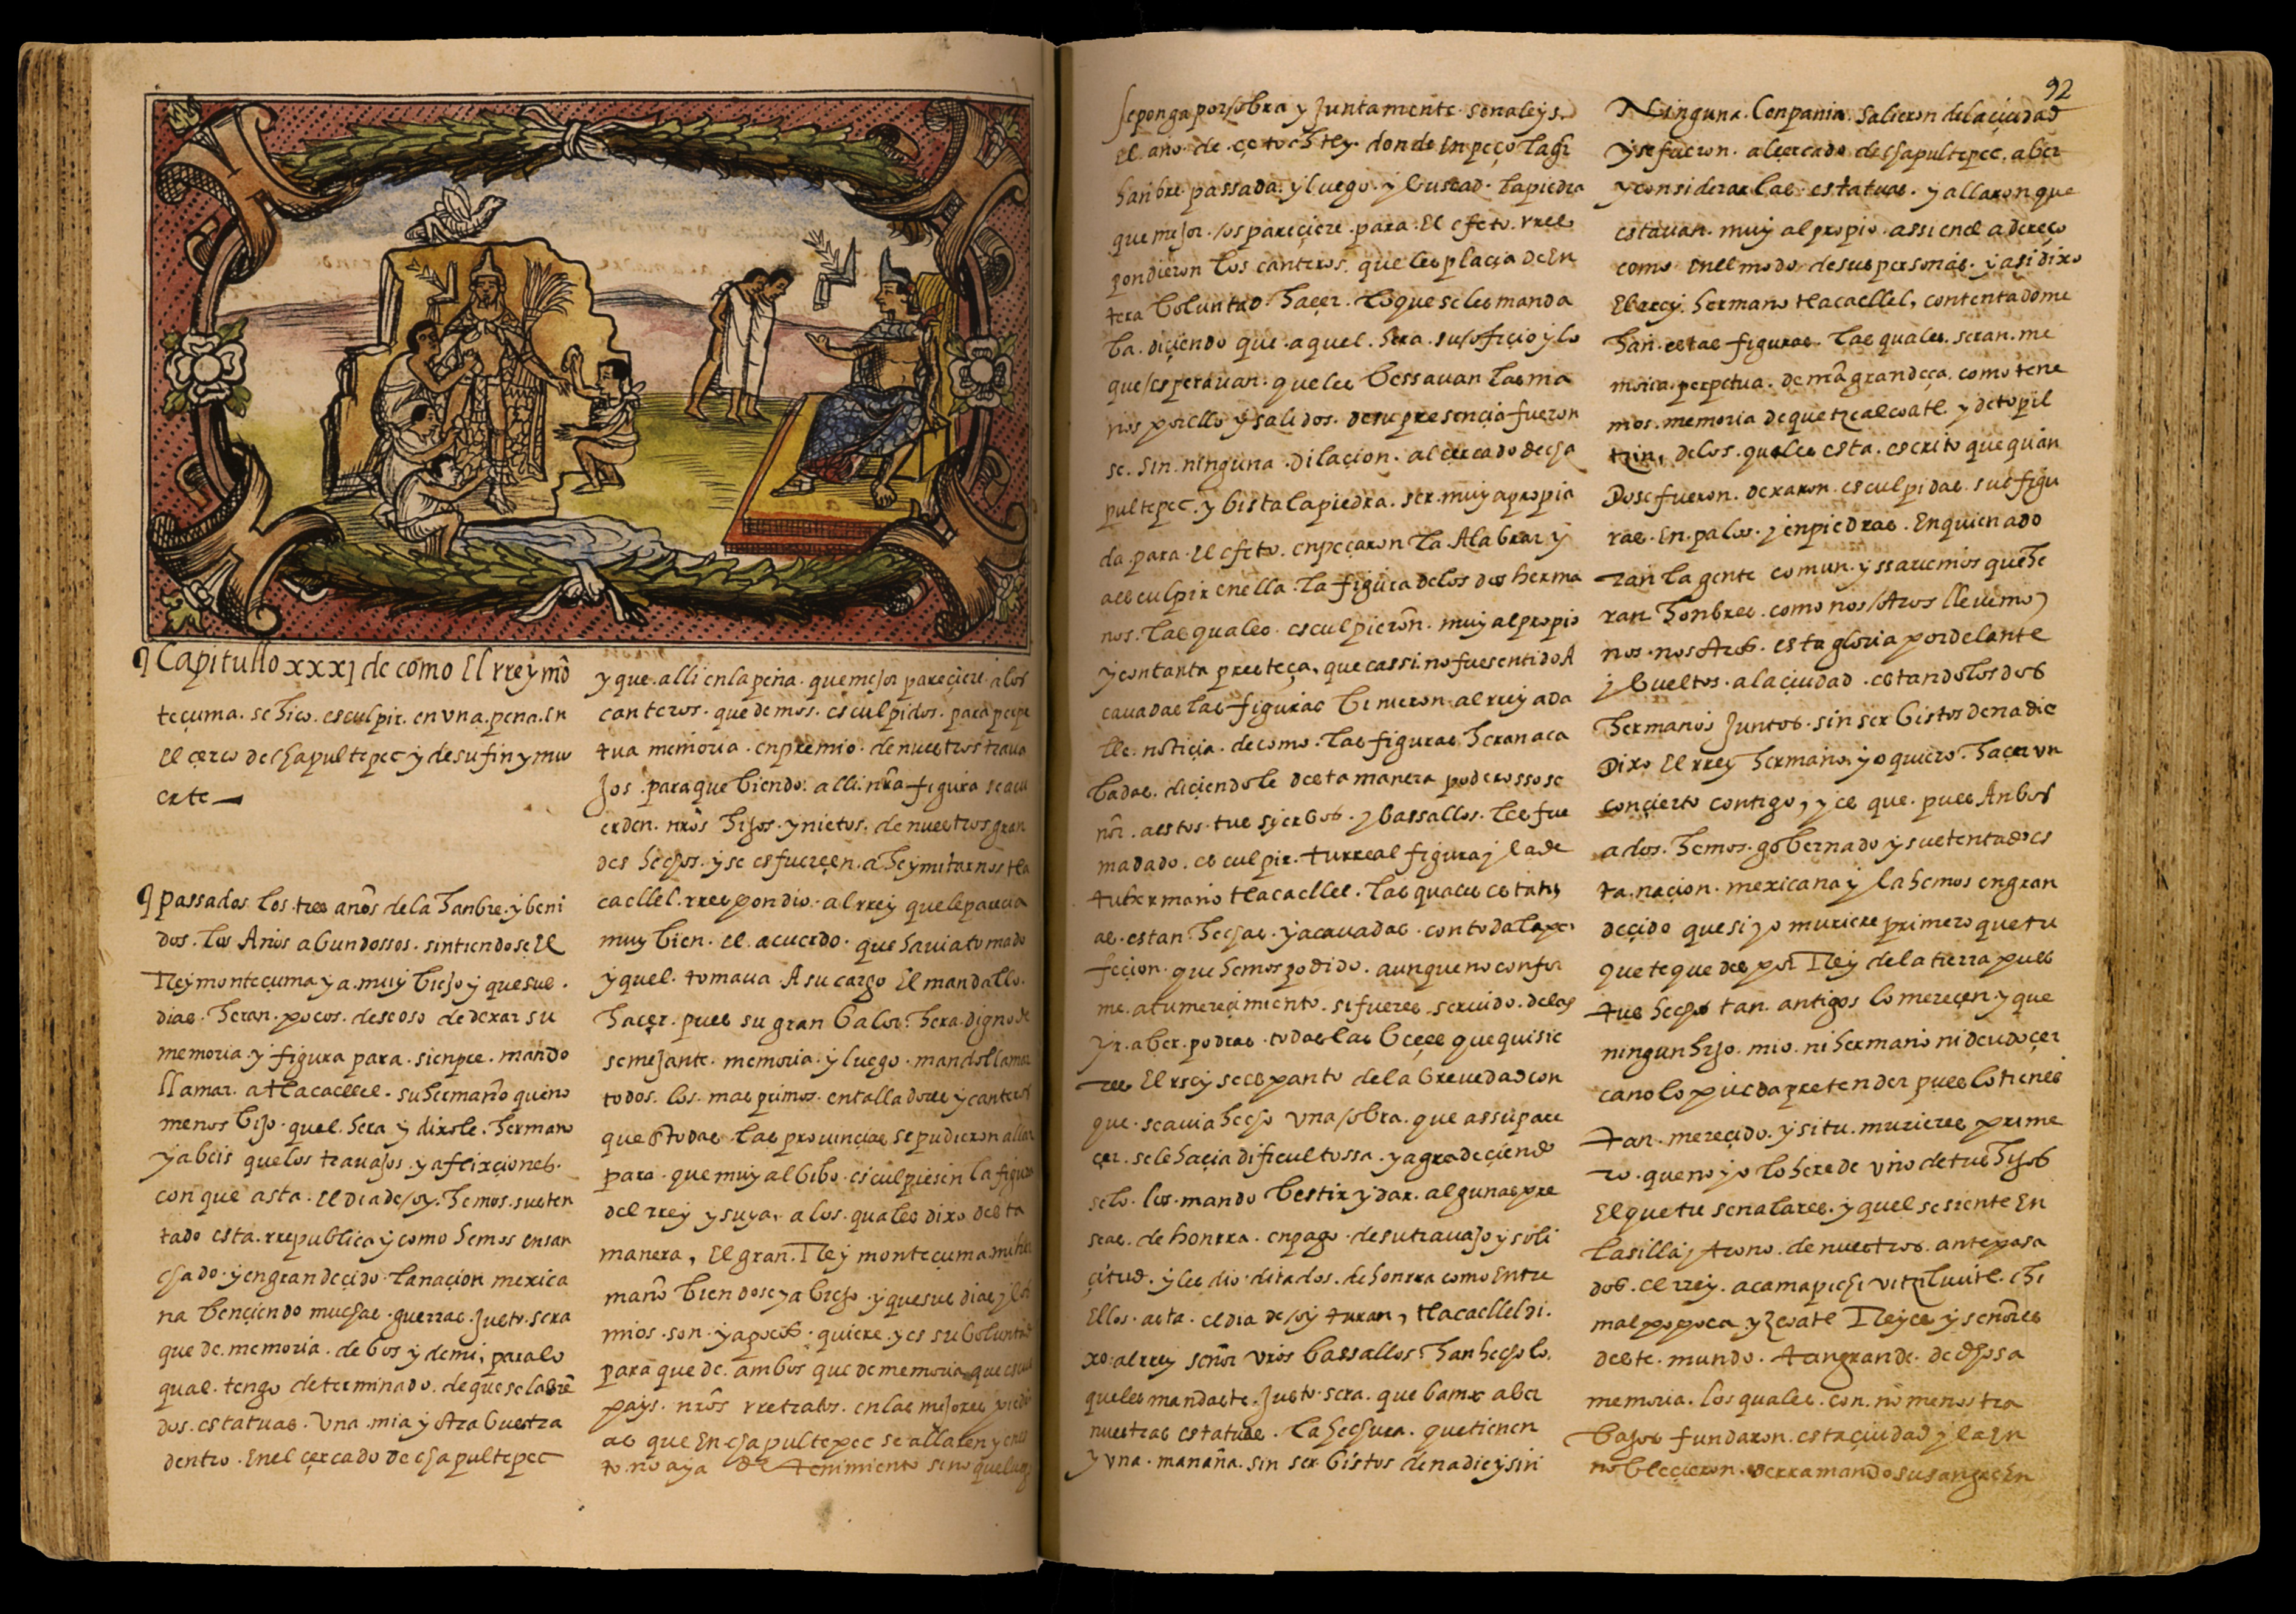 ¶ Capitullo xxxj de como El rrey mō
teçuma. se hiço. esculpir. en vna. pena. en
el çerco de chapultepec y de su fin y mu
erte
¶ passados los. tres años de la hanbre. y beni
dos. los Anōs abundossos. sintiendose El
Rey monteçuma ya. muy biejo y que sus.
dias. heran. pocos. deseoso de dexar su
memoria y figura para. sienpre. mando
llamar. a tlacaellel. su hermano que no
menos bijo. quel. hera y dixole. hermano
ya beis que los travajos. y aflixçiones.
con que asta. el dia de oy. hemos. susten
tado esta. rrepublica y como hemos ensan
chado y engrandeçido. la naçion mexica
na bençiendo muchas. guerras. Justo. sera
que de. memoria. de bos y de mi, para lo
qual. tengo determinado. de que se labrē
dos. estatuas. Vna. mia y otra buestra
dentro. En el çercado de chapultepec
y que. alli en la peña. que mejor pareçiere. a los
canteros. quedemos. esculpidos. para perpe
tua memoria. en premio. de nuestros trava
jos. para que biendo. alli. nrā figura se acu
erden. nrōs hijos. y nietos. de nuestros gran
des hechos. y se esfuerçen. a heymitarnos tla
caellel. rrespondio. al rrey que le pareçia
muy bien. el acuerdo. que havia tomado
y quel. tomava. A su cargo El mandallo.
haçer. pues su gran balor. hera. digno de
semejante. memoria. y luego. mando llamar
todos. los. mas primos. entalladores y canteros
que en todas. las provinçias. se pudieron allar
para. que muy al bibo. esculpiesen la figura
del rrey y suya, a los. quales dixo desta
manera, El gran. Rey montecuma mi her
mano biendose ya biejo y que sus dias y los
mios. son. ya pocos. quiere. y es su boluntad
para que de. ambos quede memoria que escul
pays. nrōs rretratos. en las mejores piedr
as que En chapultepec se allaren y en es
to no aya detenimiento sino que luego
se ponga por obra y Juntamente. señaleys.
el año. de. çe tochtly. donde enpeço la gr
hanbre. passada. y luego. y buscad. la piedra
que mejor. os pareçiere. para. El efeto. rres
pondieron los canteros. que les plaçia de en
tera boluntad. haçer. lo que se les manda
ba. diçiendo que. aquel. hera. su ofiçio y lo
que esperavan. que les bessavan las ma
nos por ello y salidos. de su presençia fueron
se. sin. ninguna. dilaçion. al çercado de cha
pultepec. y bista la piedra. ser. muy apropia
da. para. El efeto. enpeçaron la. A labrar y
a esculpir en ella. la figura de los dos herma
nos. las quales. esculpieron. muy al propio
y con tanta presteça, que cassi. no fue sentido A
cavadas las figuras binieron. al rrey a da
lle. notiçia. de como. las figuras heran aca
badas. diçiendole desta manera poderosso se
ñor. a estos. tus siervos. y bassallos. les fue
mādado. esculpir. tu rreal figura y la de
tu hermano tlacaellel. las quales estatu
as. estan. hechas. y acavadas. con toda la per
feçion. que hemos podido. aunque no confor
me. a tu mereçimiento. si fueres. servido. de las
yr. a ber. podras. todas las beçes que quisie
res El rey se espanto de la brevedad con
que. se avia hecho vna obra. que a ssu pare
çer. se le haçia dificultossa. y agradeçiendo
selo. los. mando bestir y dar. algunas pre
seas. de honrra. en pago. de su travajo y soli
çitud. y les dio. ditados. de honrra como entre
Ellos. asta. el dia de oy turan, tlacaellel di.
xo. al rrey señor vrōs bassallos. han hecho lo.
que les mandaste. Justo. sera. que bamos a ber
nuestras estatuas. la hechura. que tienen
y vna. manāna. sin ser. bistos de nadie y sin
92
Ninguna. Conpania. salieron de la çiudad
y se fueron. al çercado de chapultepec. a ber
y considerar las. estatuas. y allaron que
estavan. muy al propio. assi en el adereço
como En el modo de sus personas. y asi dixo
El rrey. hermano tlacaellel, contentadome
han. estas figuras. las quales. seran. me
moria. perpetua. de nrā grandeça. como tene
mos. memoria de quetzalcoatl y de topil
tzin, de los. quales esta. escrito que quan
Do se fueron. dexaron. esculpidas. sus figu
ras. En. palos. y en piedras. En quien ado
ran la gente comun. y ssavemos que he
ran honbres. como nosotros llevemo)
nos. nosotros. esta gloria por delante
y bueltos. a la çiudad. estando los dos
hermanos Juntos. sin ser bistos de nadie
Dixo El rrey hermano. yo quiero. haçer vn
conçierto contigo, y es que. pues Anbos
a dos. hemos. gobernado y sustentado es
ta. naçion. mexicana y la hemos engran
deçido que si yo muriere primero que tu
que te quedes por Rey de la tierra pues
tus hechos tan. antigos lo mereçen. y que
ningun hijo. mio. ni hermano ni deudo çer
cano lo pueda pretender pues lo tienes
tan. mereçido. y si tu. murieres prime
ro. que no yo lo herede vno de tus hijos
El que tu señalares. y quel se siente En
la silla y trono. de nuestros. antepasa
dos. el rrey. acamapichi vitziluitl. chi
malpopoca y zcoatl Reyes y señores
deste. mundo. tan grande. de dhossa
memoria. los quales. con. no menos tra
bajos fundaron. esta çiudad y la En
nobleçieron. derramando su sangre En